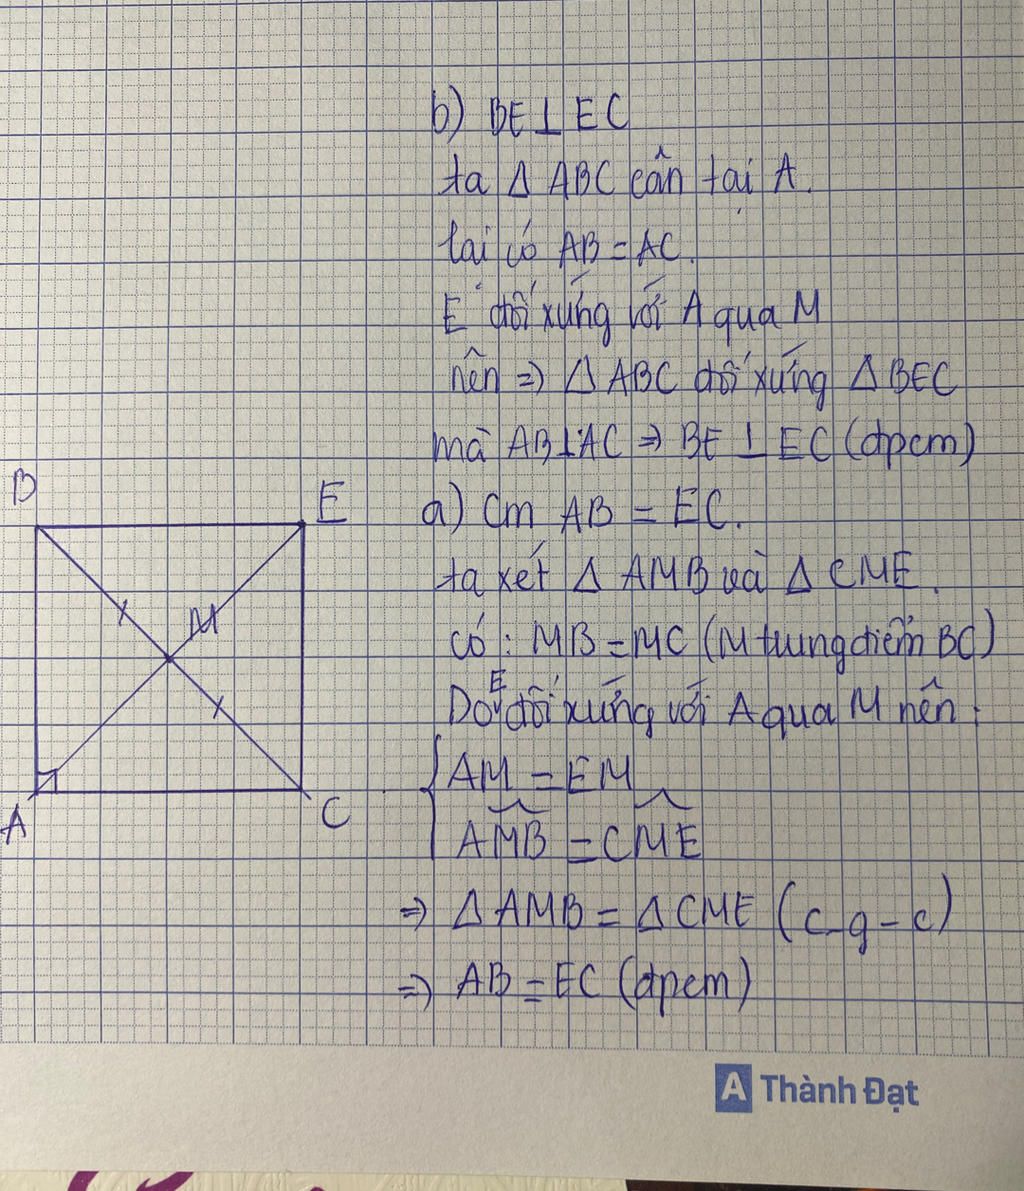 b) BE ⊥ EC
ta Δ ABC cân tại A.
lại có AB = AC.
E đối xứng với A qua M
nên => Δ ABC đối xứng Δ BEC
mà AB ⊥ AC => BE ⊥ EC (đpcm)
B
E
M
A
C
a) Cm AB = EC.
ta xét Δ AMB và Δ CME.
có : MB = MC (M trung điểm BC)
Do E đối xứng với A qua M nên :
{ AM = EM
{ \widehat{AMB} = \widehat{CME}
=> Δ AMB = Δ CME (c-g-c)
=> AB = EC (đpcm)
A Thành Đạt